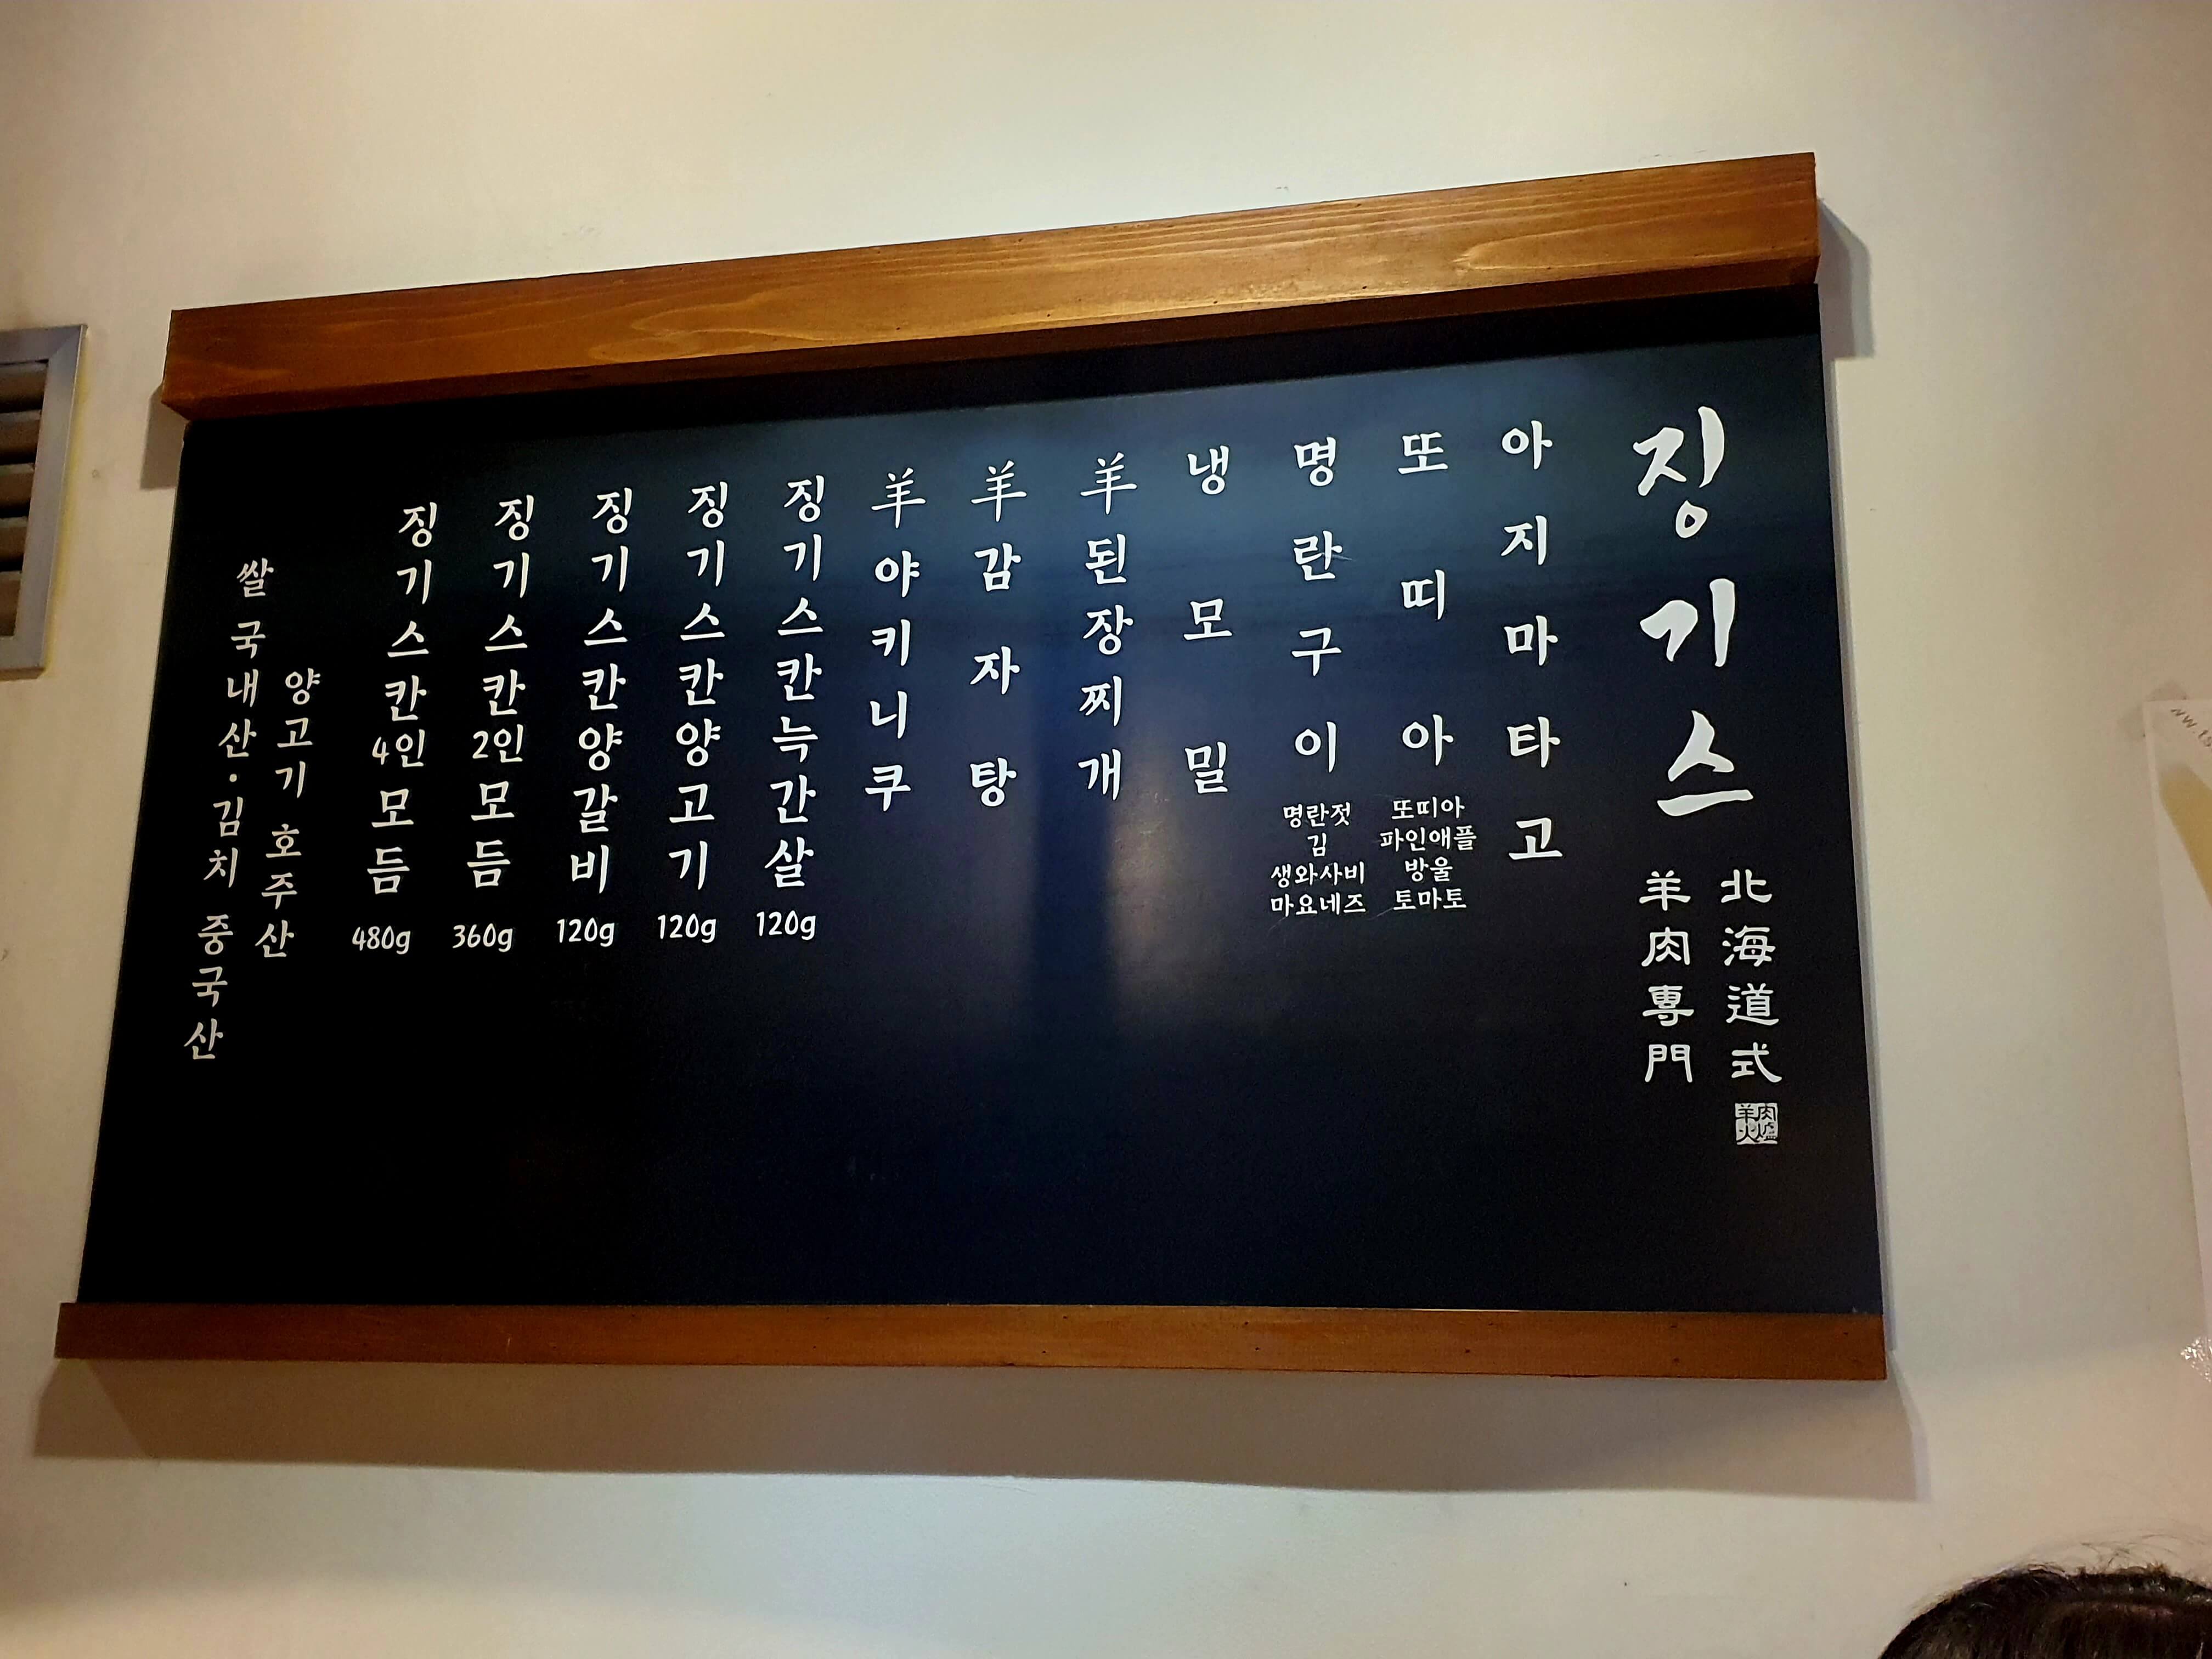 징기스
北海道式
羊肉専門
羊肉火爐
아지마타고
또띠아
또띠아
파인애플
방울
토마토
명란구이
명란젓
김
생와사비
마요네즈
냉모밀
羊된장찌개
羊감자탕
羊야키니쿠
징기스칸늑간살 120g
징기스칸양고기 120g
징기스칸양갈비 120g
징기스칸2인모듬 360g
징기스칸4인모듬 480g
양고기 호주산
쌀 국내산·김치 중국산